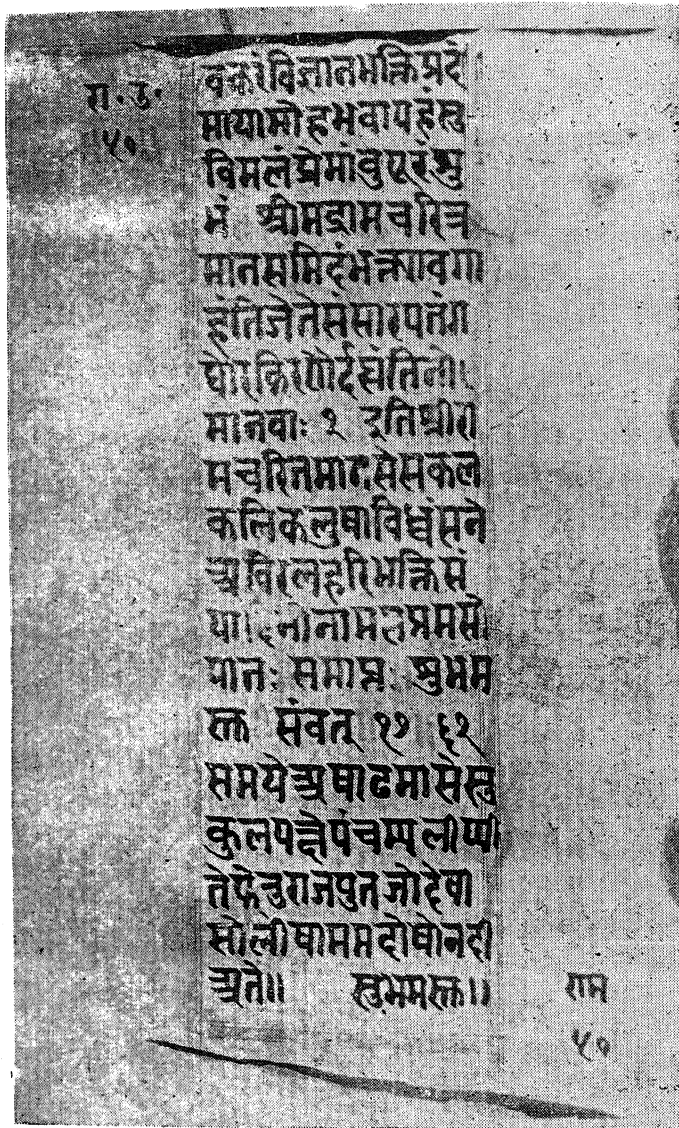 रा. उ.
५०
वकरंविज्ञातभक्तिप्रदं
मायामोहभवापहंसु
विमलंप्रेमांवुपूरंशु
भं श्रीमद्रामचरित्र
मातसमिदंभक्त्यावगा
हंतिजेतेसंसारपतंग
घोरकिरणैर्दह्यंतिनो।
मानवाः १ इतिश्रीरा
मचरितमानसेसकल
कलिकलुषाविध्वंसने
अविरलहरिभक्तिसं
पातः समाप्तः शुभम
स्तु संवत् १७ ६१
समयेअषाढमासेसु
कुलपछेपंचम्प लीप्पी
सोलीषाममदोषोनदी
अते॥ सुभमस्तु॥
राम
५०